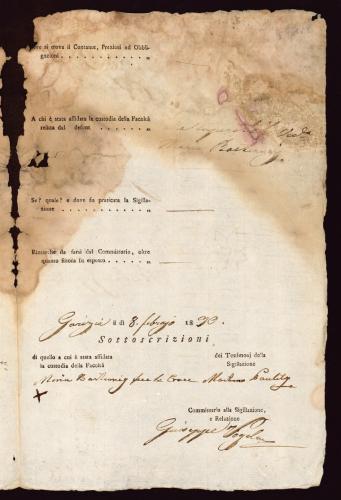 Dove si trova il Contante, Preziosi ed Obbli-
gazioni . . . . . . . . „
A chi è stata affidata la custodia della Facoltà
relitta dal defunto . . . . . „
Se? quale? e dove fu praticata la Sigilla-
zione . . . . . . . . „
Rimarche da farsi dal Commissario, oltre
quanto finora fu esposto . . . . „
Gorizia li di 8. febrajo 1830.
Sottoscrizioni
di quello a cui è stata affidata
la custodia della Facoltà
dei Testimonj della
Sigillazione
Maria fece la Croce
Martino
Commissario alla Sigillazione,
e Relazione
Giuseppe